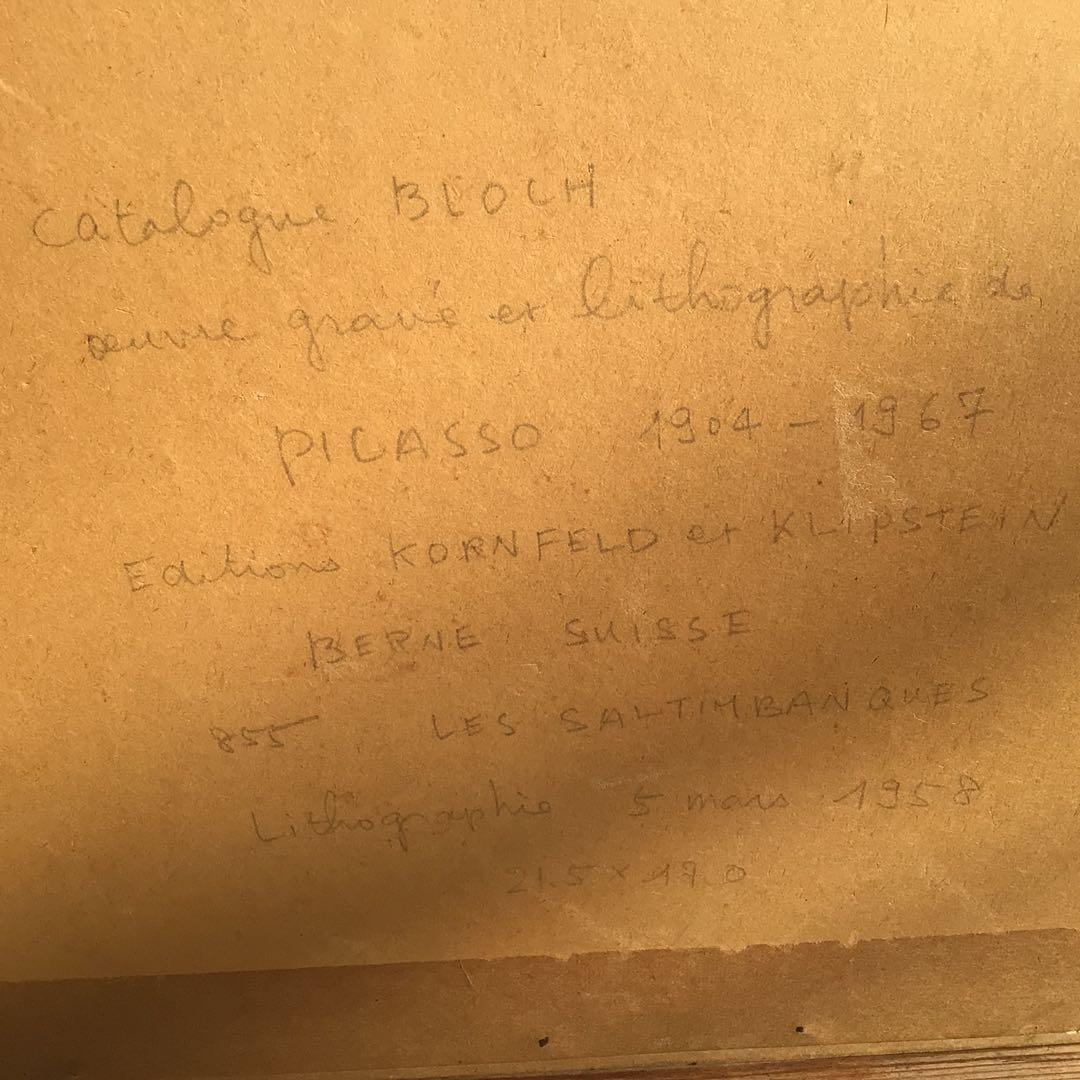 Catalogue BLOCH
œuvre gravé et lithographie de
PICASSO 1904 - 1967
Editions KORNFELD et KLIPSTEIN
BERNE SUISSE
855 LES SALTIMBANQUES
Lithographie 5 mars 1958
21.5 x 17.0